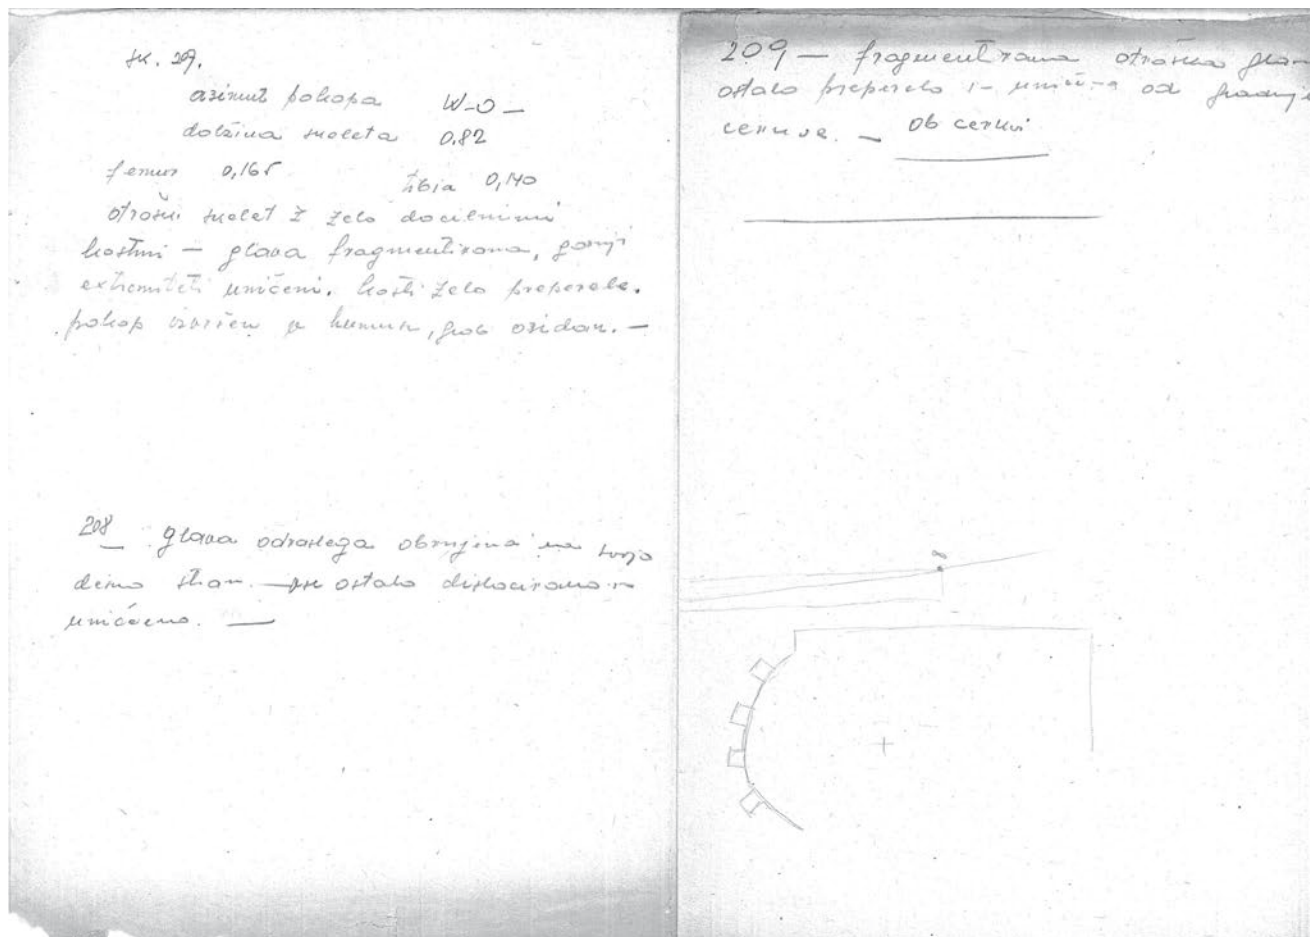 sk. 207.
azimut pokopa W-O —
dolžina skeleta 0.82
femur 0,165 tibia 0,140
otroški skelet z zelo
kostmi — glava fragmentirana, gornji
extremiteti uničeni. kosti zelo preperele.
pokop izvršen v humusu, grob ozidan. —
208 — glava odraslega obrnjena na svojo
desno stran. — vse ostalo dislocirano in
uničeno. —
209 — fragmentirana otroška glava
ostalo preperelo in uničeno od gradnje
cerkve. — ob cerkvi